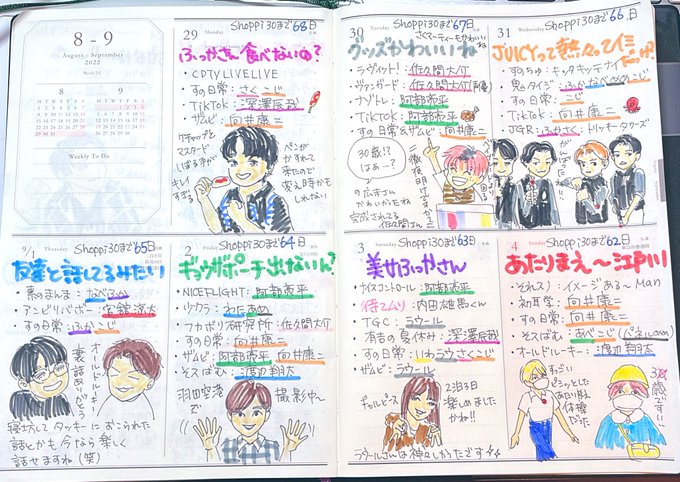 8 - 9
August - September
2022
Week 35
8
9
Weekly To Do
29 Monday Shoppi30まで68日
ふっかさん食べないの?
・CDTV LIVE LIVE
・すの日常: さくこじ
・TikTok: 深澤辰哉
・ザムビ: 向井康二
ケチャップと
マスタード
しぼる手が
キレイ
すぎる
ペンが
かすれて
来たので
変え時かも
しれない
30 Shoppi30まで67日
グッズかわいいね
・ラヴィット!: 佐久間大介
・ヴァンガード: 佐久間大介(声優)
・ナゾトレ: 阿部亮平
・TikTok: 阿部亮平
・すの日常&ザムビ: 向井康二
30歳!?
はぁー?
31 Wednesday Shoppi30まで66日
・TikTok: 向井康二
・JGR: ふかさく
9/1 Thursday Shoppi30まで65日
友達と話してるみたい
・素のまんま: なべふか
・アンビリバボー: 宮舘涼太
・すの日常: ふかこじ
オールドルーキー
裏話ありがとう
寝坊して タッキーに おこられた
話とかも 今なら 楽しく
話せますね (笑)
2 Friday Shoppi30まで64日
ギョウザポーチ出ないん?
・NICE FLIGHT: 阿部亮平
・フカボリ研究所: 佐久間大介
・すの日常: 向井康二
・ザムビ: 阿部亮平 向井康二
・そスぱむ: 渡辺翔太
羽田空港
で
撮影中〜
3 Saturday Shoppi30まで63日
美女ふっかさん
・ナイスコントロール: 阿部亮平
・待てムリ: 内田雄馬くん
・TGC: ラウール
・有吉の夏休み: 深澤辰哉
・すの日常: いわラウさくこじ
・ザムビ: ラウール
ギャルピース
2泊3日
楽しめました
かね!!
ラウールさんは 神々しかったです
4 Sunday Shoppi30まで62日
あたりまえ〜江戸川
・それスノ: イメージある〜Man
・初耳学: 向井康二
・すの日常: 向井康二
・そスぱむ: あべこじ
・オールドルーキー: 渡辺翔太
すっごい
ピシッとした
あたり前
体操
だった
3歳です!!